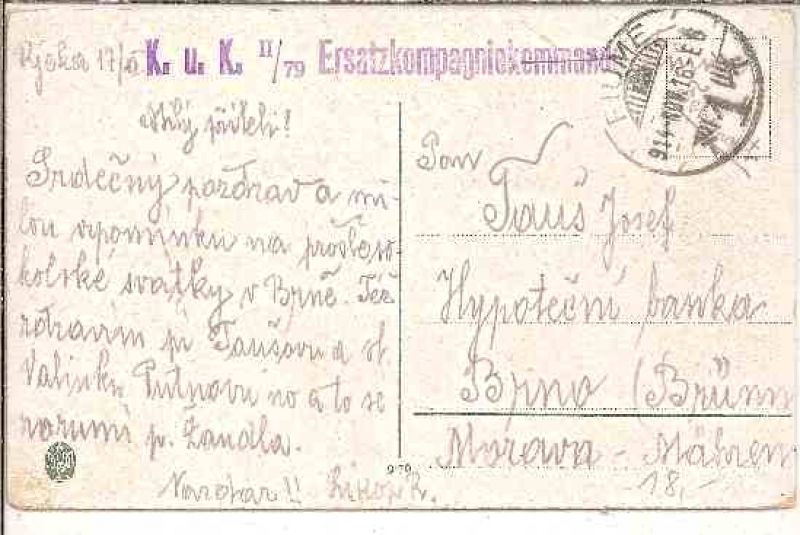 Rjeka 17/
K. u. K. II/79 Ersatzkompagniekommando
FIUME
Milý příteli!
Srdečný pozdrav a mi-
lou vzpomínku na
svátky v Brně. Též
zdravím pí Taušovu a sl.
Valinku no a to se
rozumí p. Žandla.
Nazdar!!
Pan
Tauš Josef
Hypoteční banka
Brno (Brünn
Morava - Mähren
970
18,-